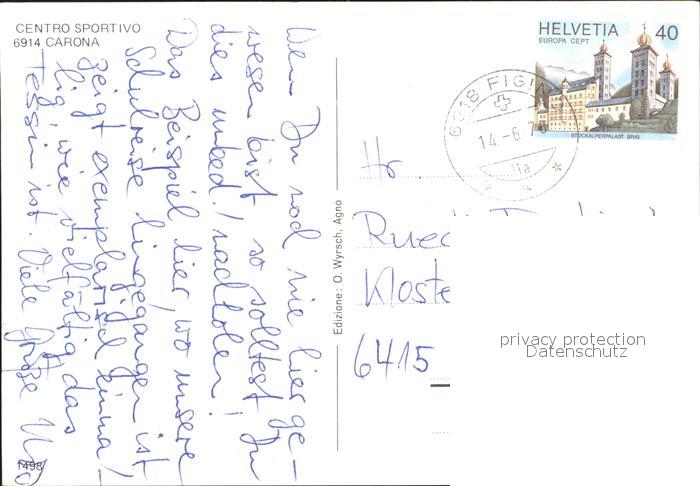 CENTRO SPORTIVO
6914 CARONA
Wenn Du noch nie hier ge-
wesen bist so solltest Du
dies unbed./nachholen!
Das Beispiel hier, wo unsere
Schulreise hingegangen ist
zeigt exemplarisch einma/
lig wie vielfältig das
Tessin ist. Viele Grüße
1498
Edizione: O. Wyrsch, Agno
HELVETIA 40
EUROPA CEPT
STOCKALPERPALAST BRIG
6918 FIGI
14.-6.7
Hr
Rued
Kloste
6415
privacy protection
Datenschutz